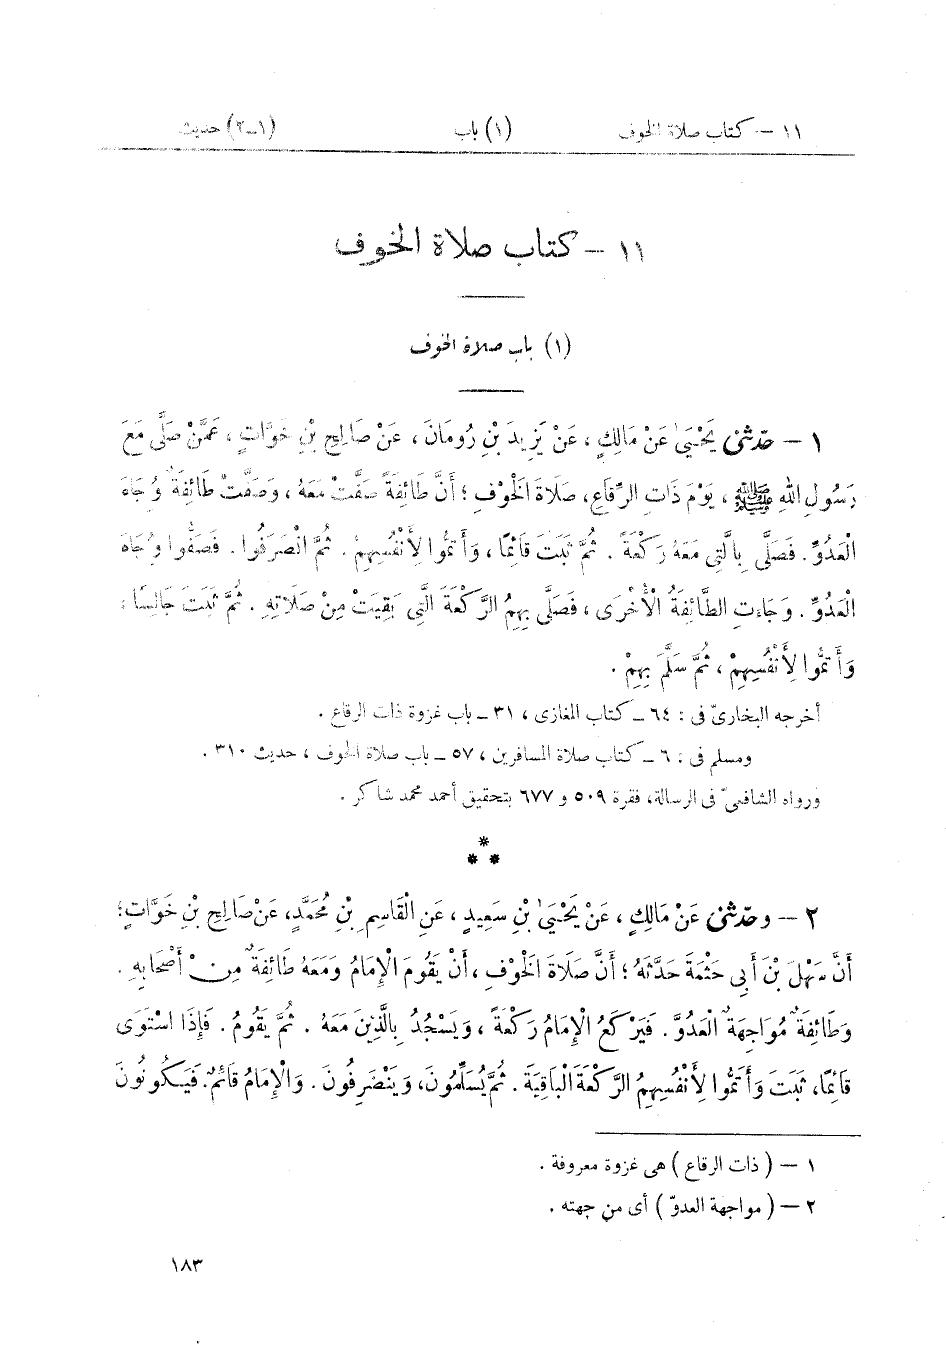 ١١ – كتاب صلاة الخوف (١) باب (١-٢) حديث
١١ – كتاب صلاة الخوف
(١) باب صلاة الخوف
١ – حَدّثنى يَحْيَىٰ عَنْ مَالِكٍ ، عَنْ يَزِيدَ بْنِ رُومَانَ ، عَنْ صَالِحِ بْنِ خَوَّاتٍ ، عَمَّنْ صَلَّى مَعَ
رَسُولِ اللهِ ﷺ ، يَوْمَ ذَاتِ الرِّقَاعِ، صَلَاةَ الْخَوْفِ ؛ أَنَّ طَائِفَةً صَفَّتْ مَعَهُ ، وَصَفَّتْ طَائِفَةٌ وُجَاهَ
الْعَدُوِّ . فَصَلَّى بِالَّتِى مَعَهُ رَكْعَةً . ثُمَّ ثَبَتَ قَائِمًا ، وَأَتَمُّوا لِأَنْفُسِهِمْ . ثُمَّ انْصَرَفُوا . فَصَفُّوا وُجَاهَ
الْعَدُوِّ . وَجَاءَتِ الطَّائِفَةُ الْأُخْرَى ، فَصَلَّى بِهِمُ الرَّكْعَةَ الَّتِى بَقِيَتْ مِنْ صَلَاتِهِ . ثُمَّ ثَبَتَ جَالِسًا ؛
وَأَتَمُّوا لِأَنْفُسِهِمْ ، ثُمَّ سَلَّمَ بِهِمْ .
أخرجه البخارىّ فى : ٦٤ – كتاب المغازى ، ٣١ – باب غزوة ذات الرقاع .
ومسلم فى : ٦ – كتاب صلاة المسافرين ، ٥٧ – باب صلاة الخوف ، حديث ٣١٠ .
ورواه الشافعىّ فى الرسالة، فقرة ٥٠٩ و ٦٧٧ بتحقيق أحمد محمد شاكر .
*
* *
٢ – وحَدّثنى عَنْ مَالِكٍ ، عَنْ يَحْيَىٰ بْنِ سَعِيدٍ ، عَنِ الْقَاسِمِ بْنِ مُحَمَّدٍ، عَنْ صَالِحِ بْنِ خَوَّاتٍ ؛
أَنَّ سَهْلَ بْنَ أَبِى حَثْمَةَ حَدَّثَهُ ؛ أَنَّ صَلَاةَ الْخَوْفِ ، أَنْ يَقُومَ الْإِمَامُ وَمَعَهُ طَائِفَةٌ مِنْ أَصْحَابِهِ .
وَطَائِفَةٌ مُوَاجِهَةٌ الْعَدُوَّ . فَيَرْكَعُ الْإِمَامُ رَكْعَةً ، وَيَسْجُدُ بِالَّذِينَ مَعَهُ . ثُمَّ يَقُومُ . فَإِذَا اسْتَوَى
قَائِمًا، ثَبَتَ وَأَتَمُّوا لِأَنْفُسِهِمُ الرَّكْعَةَ الْبَاقِيَةَ . ثُمَّ يُسَلِّمُونَ، وَيَنْصَرِفُونَ . وَالْإِمَامُ قَائِمٌ. فَيَكُونُونَ
١ – ( ذات الرقاع ) هى غزوة معروفة .
٢ – ( مواجهة العدوّ ) أى من جهته .
١٨٣